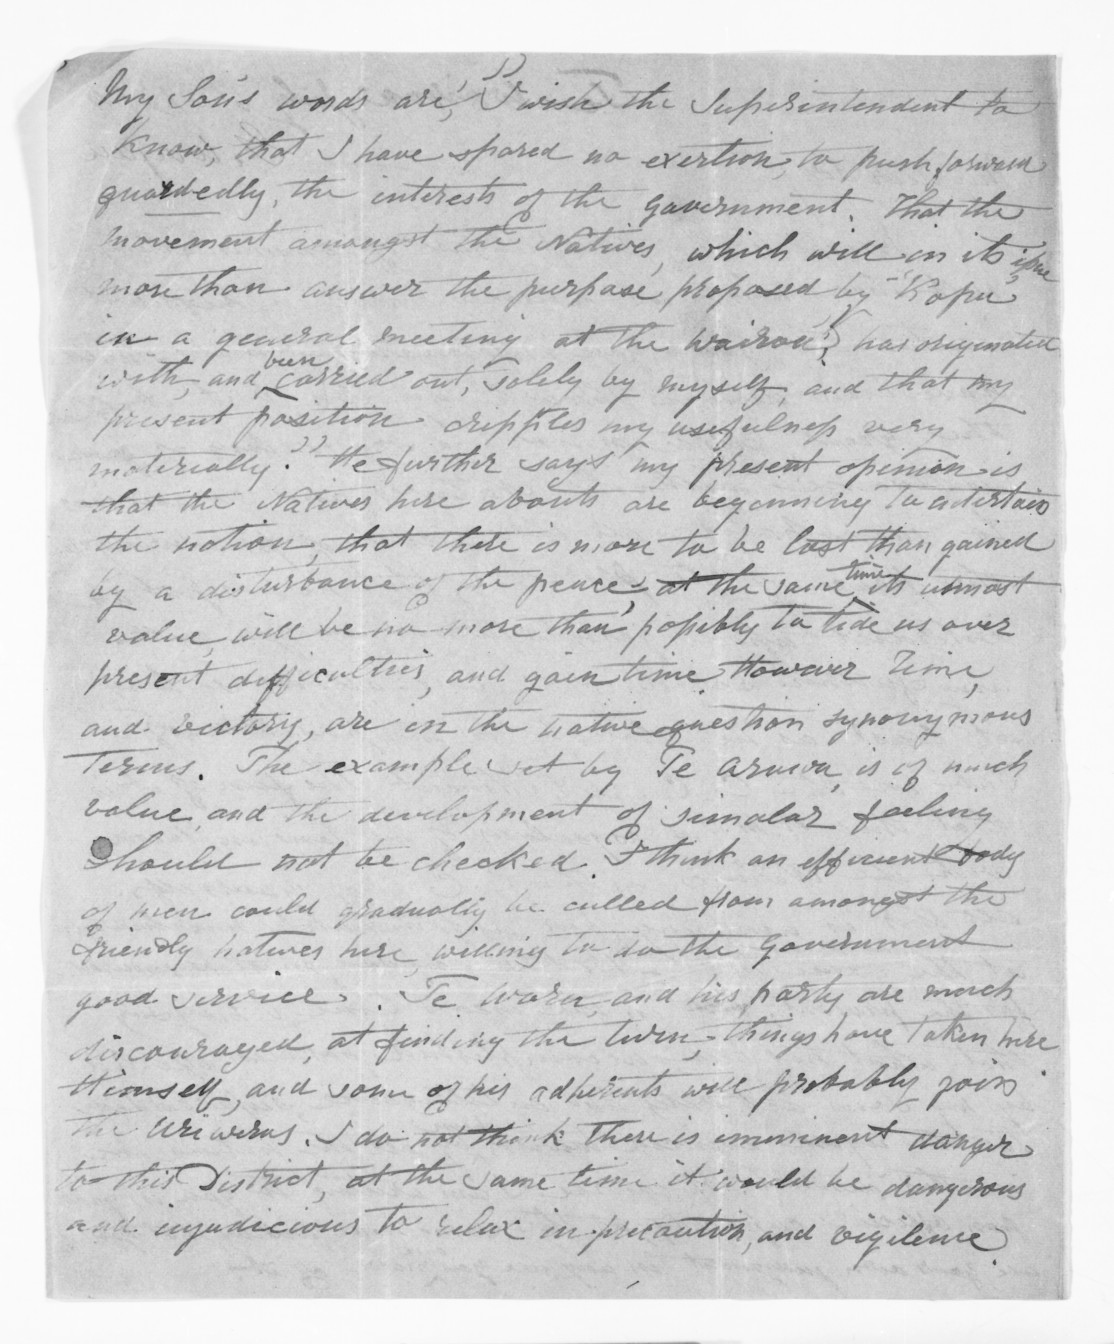 My Son's words are, "I wish the Superintendent to
Know, that I have spared no exertion, to push forward
guardedly, the interests of the Government. That the
movement amongst the Natives, which will in its issue
more than answer the purpose proposed by "Kopu"
in a general meeting at the Wairoa, has originated
with, and been carried out, solely by myself, and that my
present position cripples my usefulness very
materially." He further says "my present opinion is
that the Natives here abouts are beginning to entertain
the notion, that there is more to be lost than gained
by a disturbance of the peace, at the same time its utmost
value, will be no more than possibly to tide us over
present difficulties, and gain time However Time,
and victory, are in the native question synonymous
Terms. The example set by Te Arawa, is of much
value, and the development of similar feeling
Should not be checked. I think an efficient body
of men could gradually be culled from amongst the
Friendly natives here, willing to do the Government
good service. Te Waru, and his party are much
discouraged, at finding the turn, things have taken here
Himself, and some of his adherents will probably join
the Uriweras. I do not think there is imminent danger
to this District, at the same time it would be dangerous
and injudicious to relax in precaution, and vigilence.